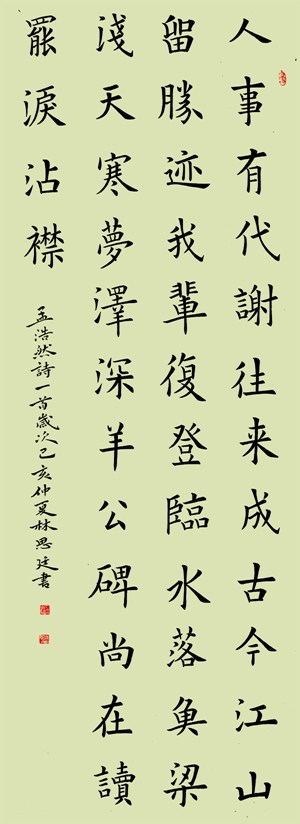 人事有代謝往来成古今江山
留勝迹我輩復登臨水落魚梁
淺天寒夢澤深羊公碑尚在讀
罷淚沾襟
孟浩然詩一首歲次己亥仲夏林思廷書